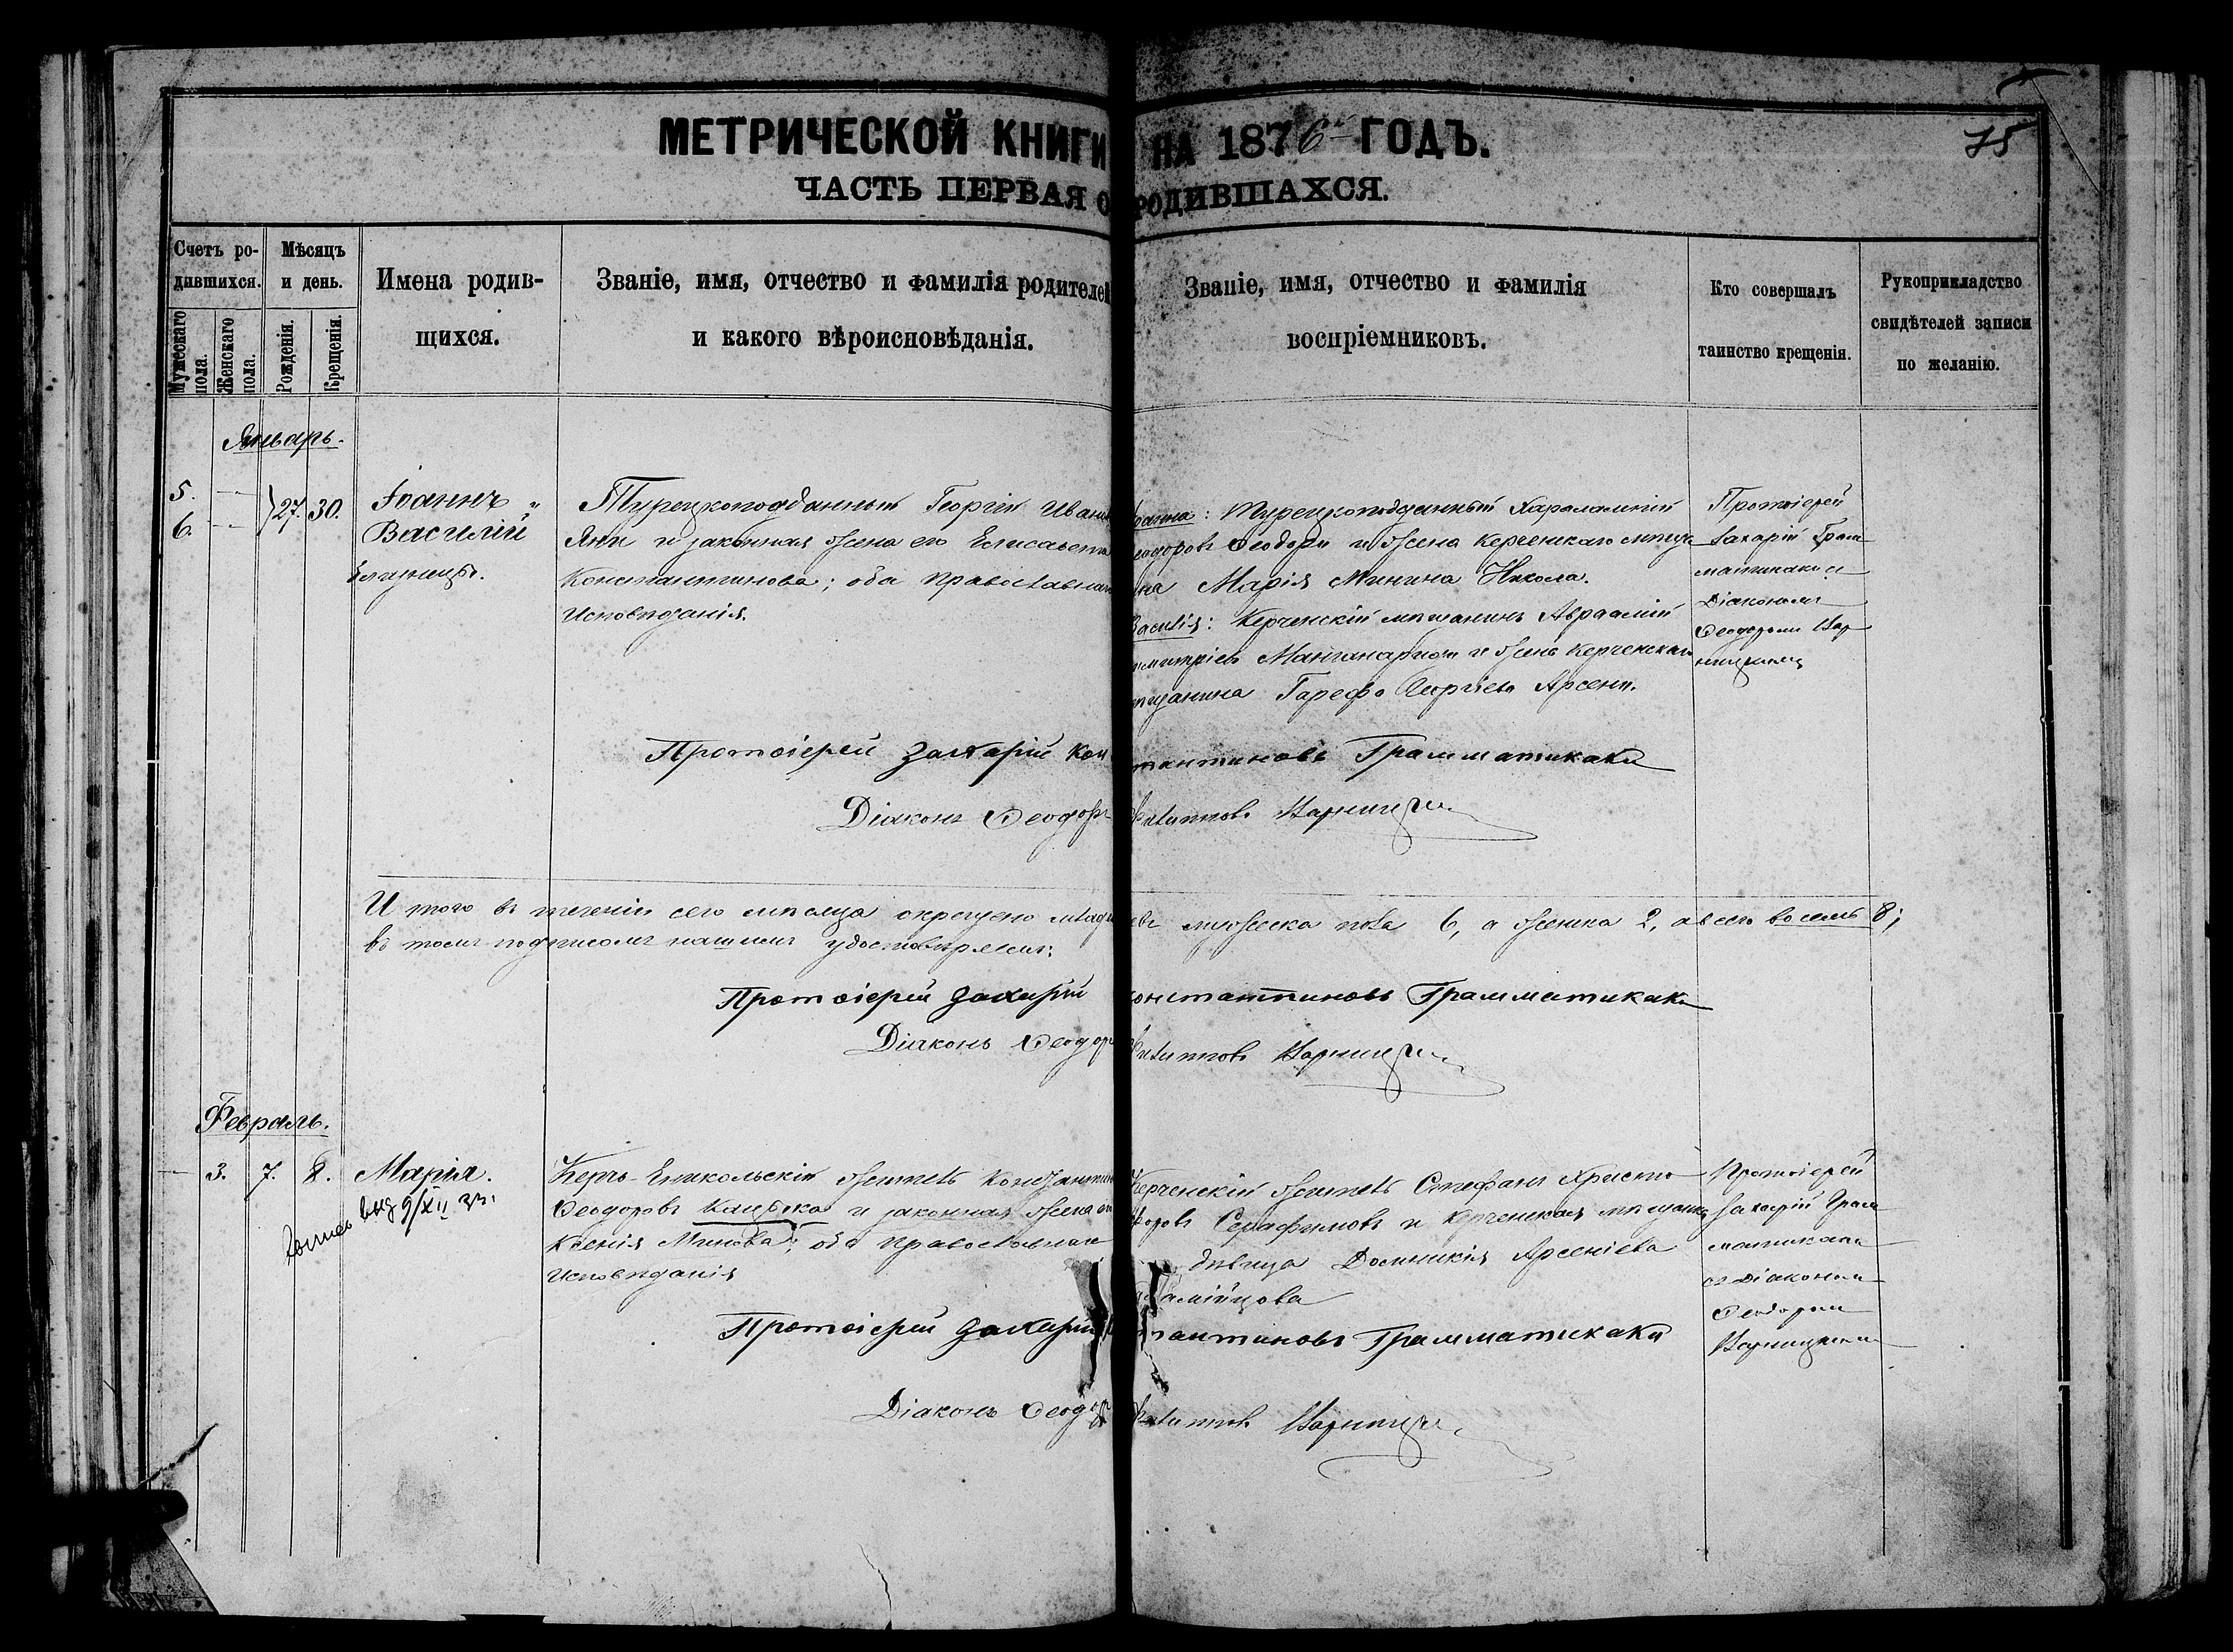 МЕТРИЧЕСКОЙ КНИГИ НА 1876й ГОДЪ.
75
ЧАСТЬ ПЕРВАЯ О РОДИВШАХСЯ.
Счетъ ро-
дившихся.
Мужескаго пола.
Женскаго пола.
Мѣсяцъ
и день.
Рожденія.
Крещенія.
Имена родив-
щихся.
Званіе, имя, отчество и фамилія родителей
и какого вѣроисповѣданія.
Званіе, имя, отчество и фамилія
воспріемниковъ.
Кто совершалъ
таинство крещенія.
Рукоприкладство
свидѣтелей записи
по желанію.
Январь.
5.
6.
27. 30.
Іоаннъ
Василій
близнецы.
Турецкоподданный Георгій Иван
Яни и законная жена его Елисавета
Константинова; оба православнаго
исповѣданія.
Турецкоподданный Харалампій
Ѳеодори и жена Керченскаго мѣща
на Марія Минина Никола.
Василія: Керченскій мѣщанинъ Авраамій
и жена Керченскаго
Арсени.
Протоіерей
Захарій Грам
матикаки съ
Діакономъ
Ѳеодоромъ
Протоіерей Захарій Константиновъ Грамматикаки
Діаконъ Ѳеодоръ Филипповъ
И того въ теченіи сего мѣсяца окрещено младенцевъ мужеска пола 6, а женска 2, а всего восемь 8;
въ томъ подписомъ нашимъ удостовѣряемъ:
Протоіерей Захарій Константиновъ Грамматикаки
Діаконъ Ѳеодоръ Филипповъ
Февраль.
3. 7. 8. Марія.
Керчь-Еникольскій житель Константинъ
Ѳеодоровъ и законная жена его
Ксенія Минова; оба православнаго
исповѣданія
Керченскій житель Стефанъ Христо
форовъ Серафимовъ и Керченская мѣщанка
дѣвица Домникія Арсеніева
Протоіерей
Захарій Грам
матикаки
съ Діакономъ
Ѳеодоромъ
Протоіерей Захарій Константиновъ Грамматикаки
Діаконъ Ѳеодоръ Филипповъ